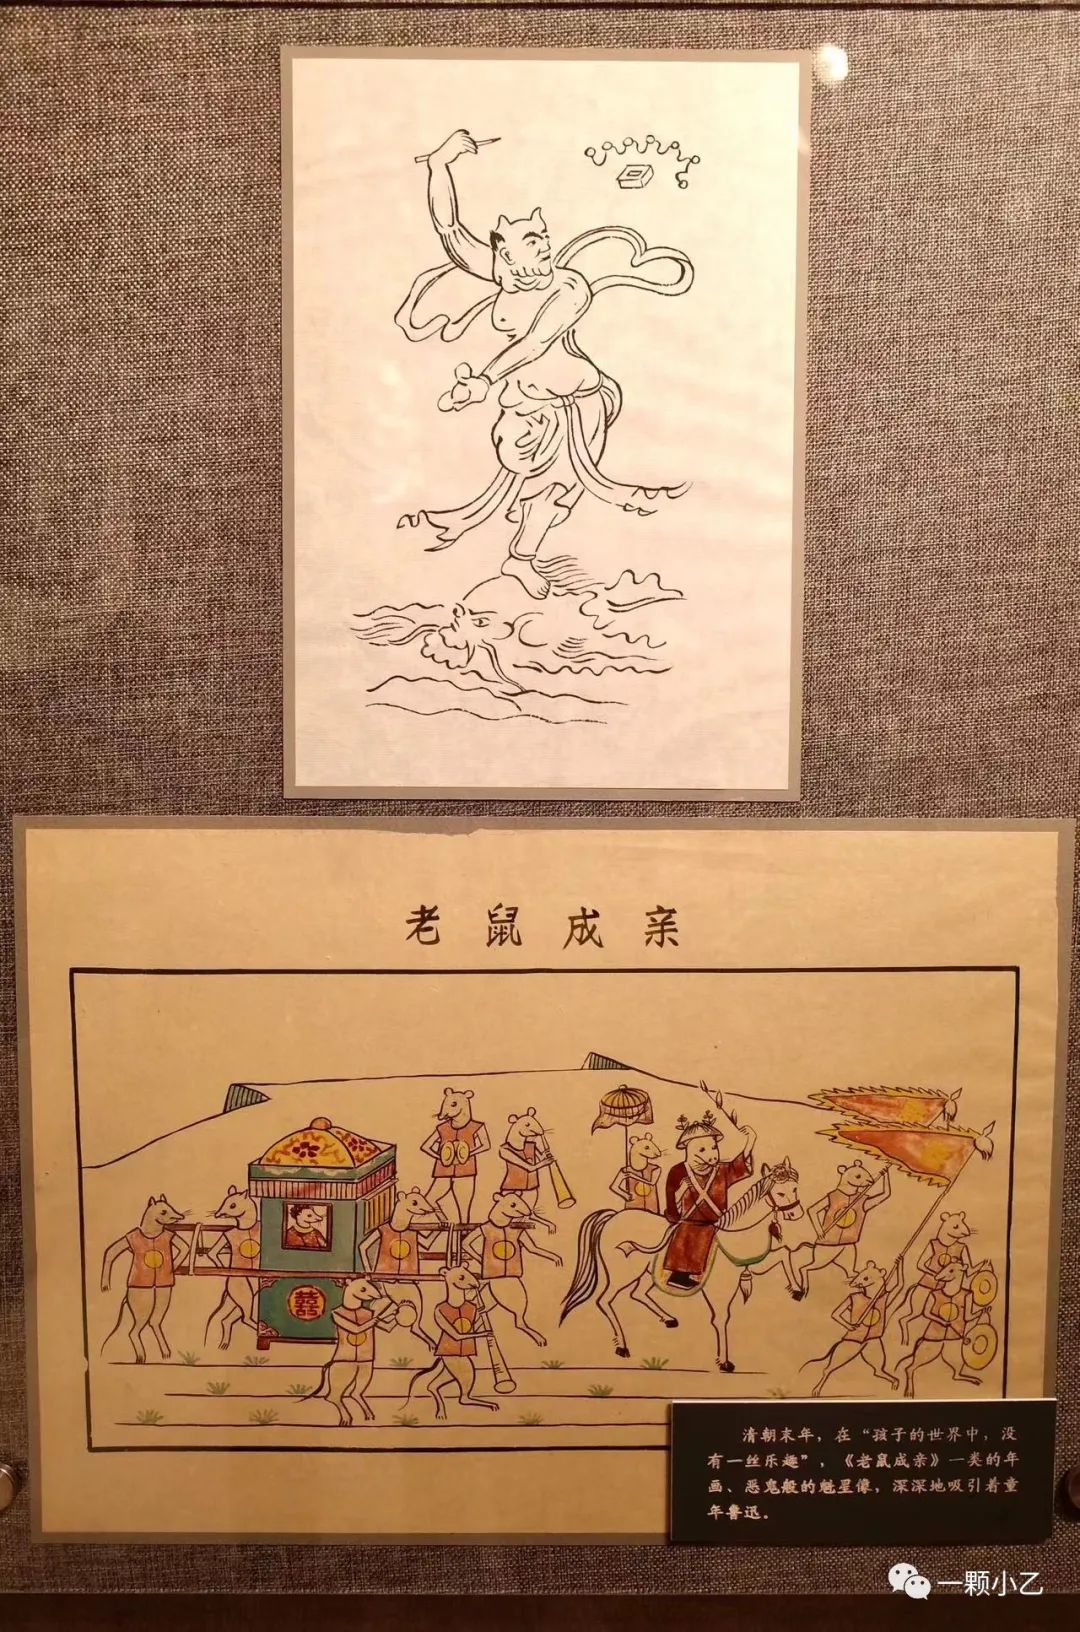 老鼠成亲
囍
清朝末年，在“孩子的世界中，没
有一丝乐趣”，《老鼠成亲》一类的年
画、恶鬼般的魁星像，深深地吸引着童
年鲁迅。
一颗小乙